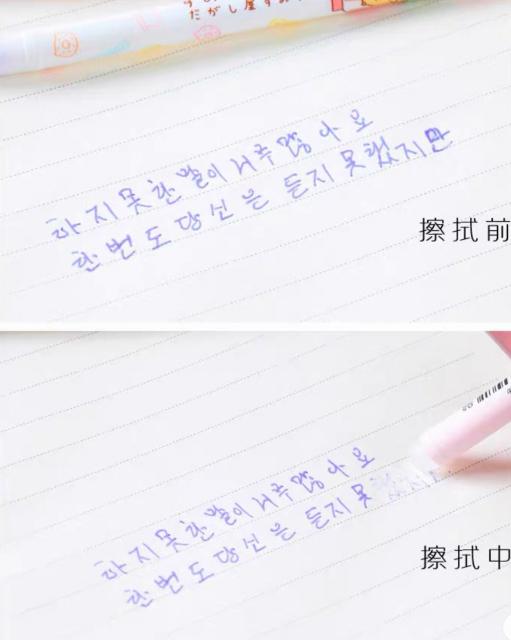 だがし屋
하지못한말이너무많아요
한번도당신은듣지못했지만
擦拭前
하지못한말이너무많아요
한번도당신은듣지못
擦拭中